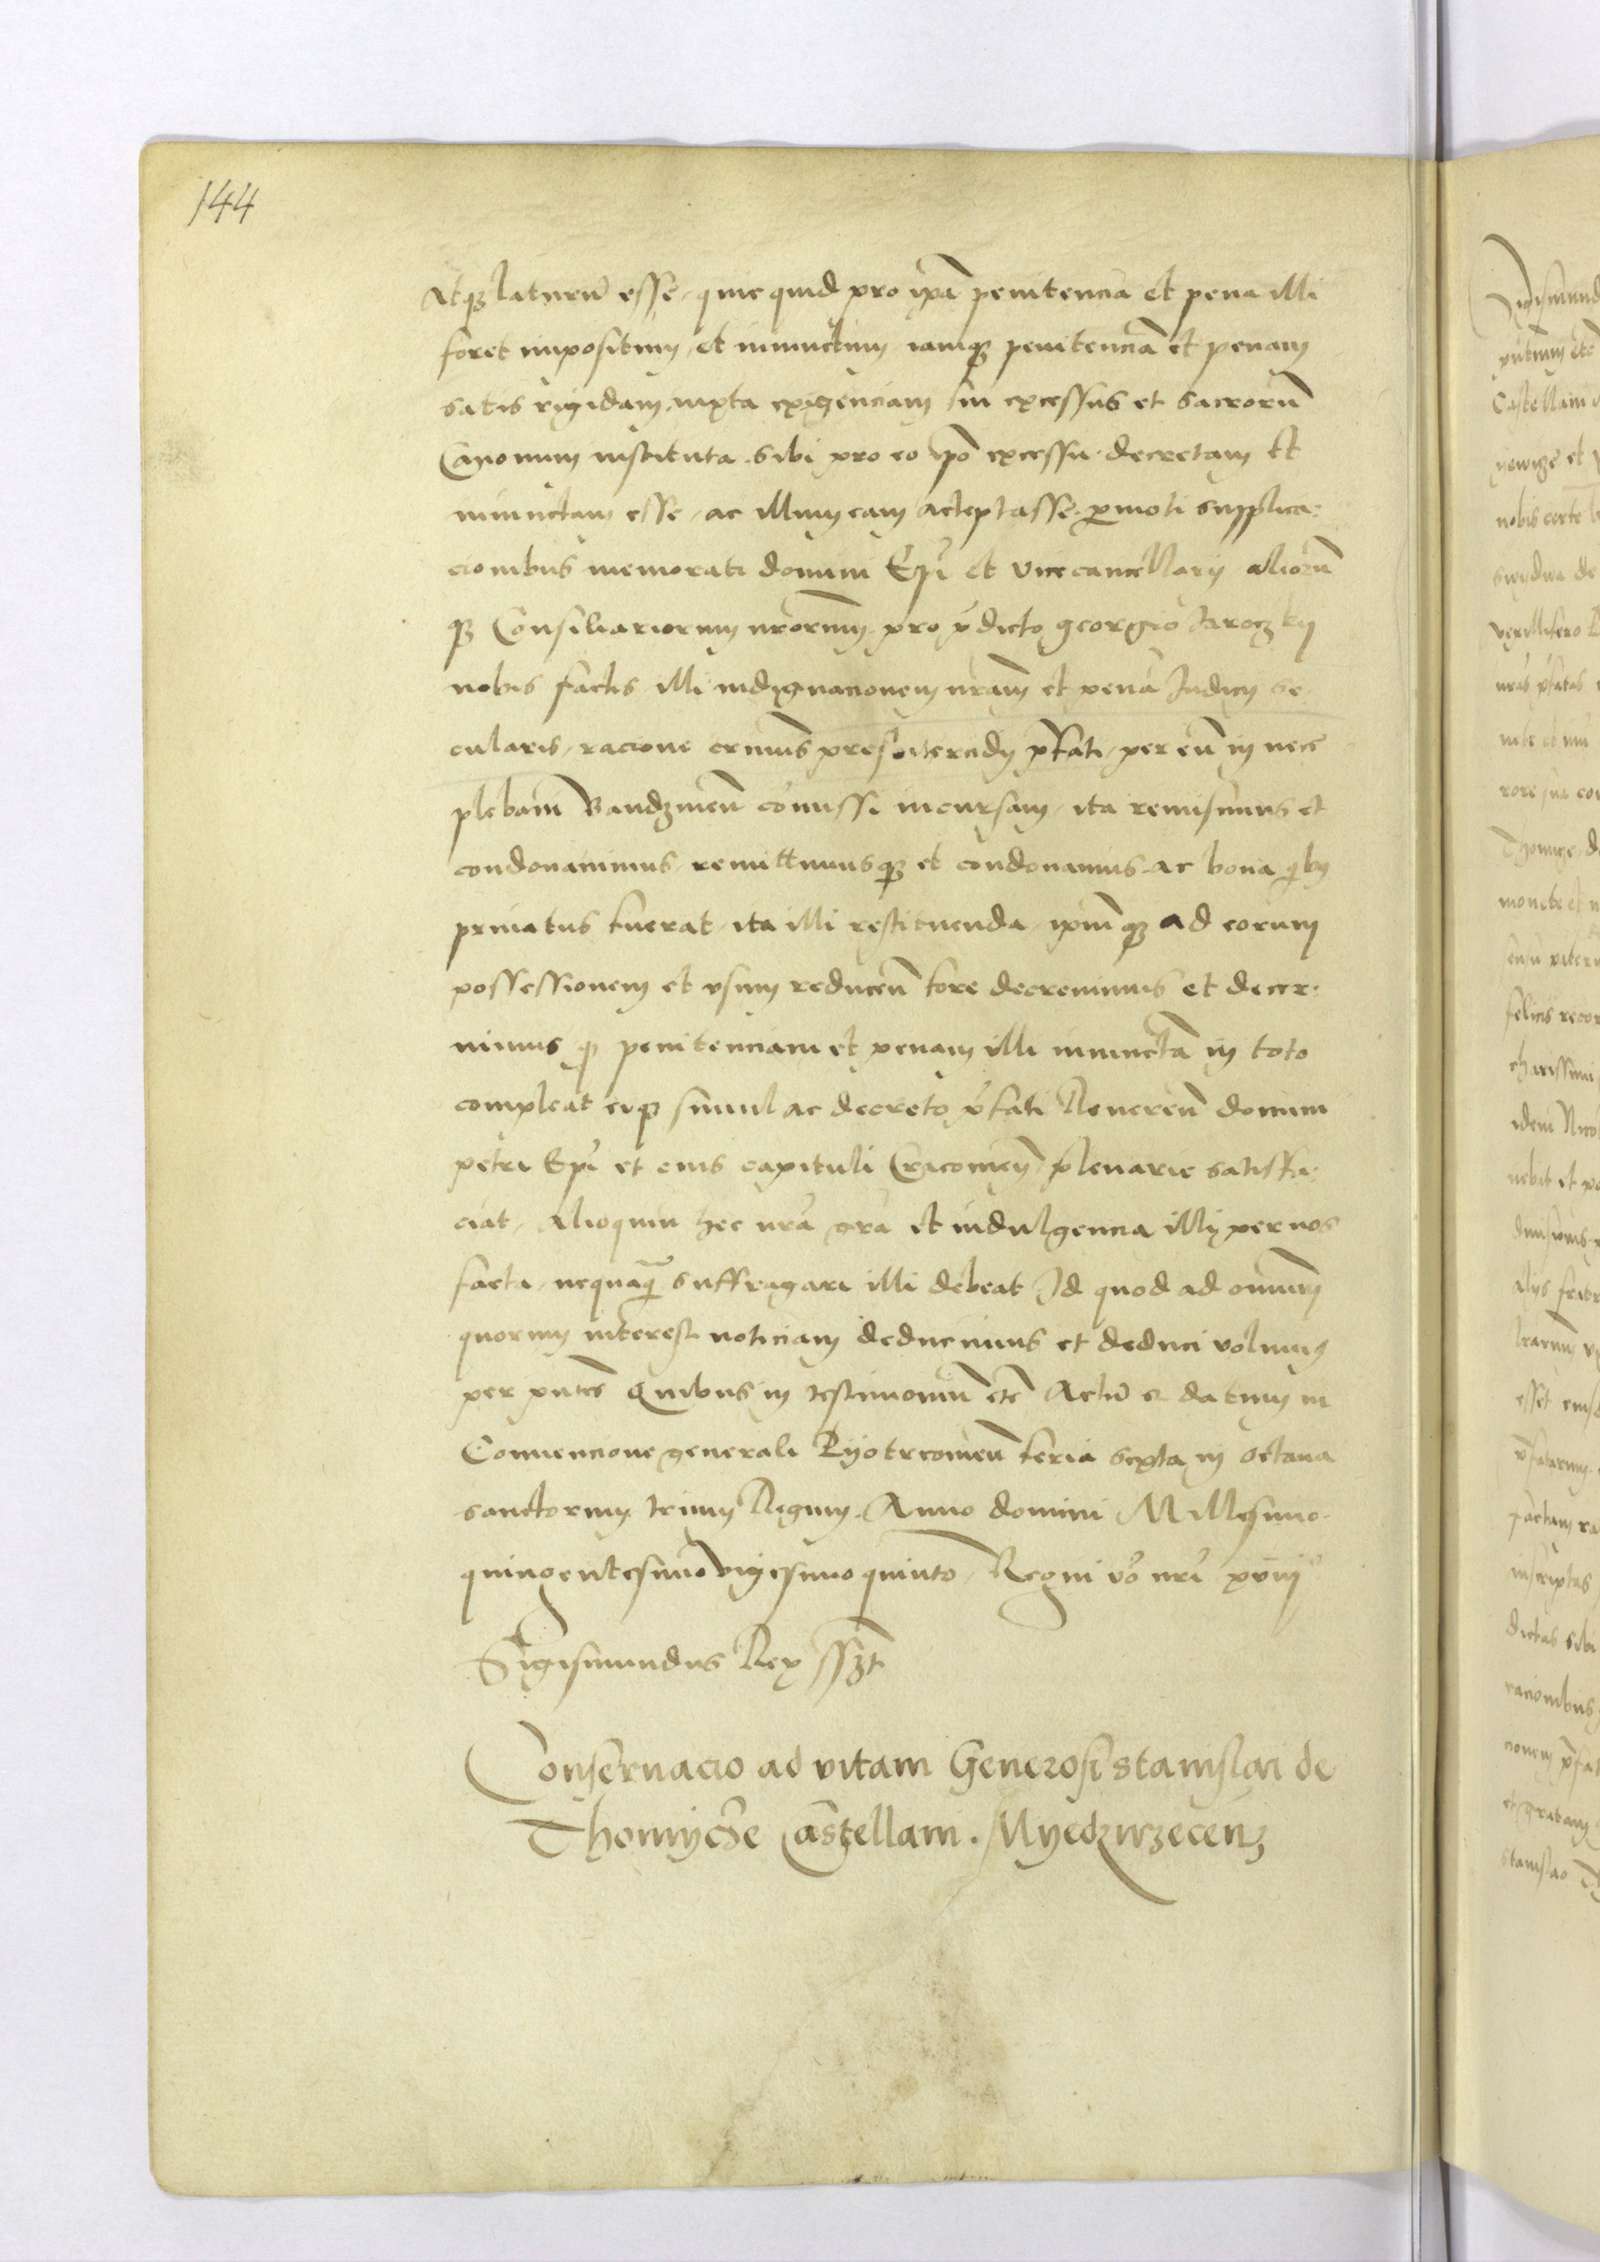 144
Atqʒ laturū esse, quicquid pro ipā penitencia et pena illi
foret impositum, et iniunctum iamqʒ penitenciā et penam
satis rigidam, iuxta exigenciam sui excessus et sacrorū
Canonum instituta sibi pro eo ipō excessu decretam et
iniunctam esse, ac illum eam acceptasse, ꝑmoti supplica:
cionibus memorati domini Epī et Vicecancellarij aliorū
qʒ Consiliariorum nrorum pro p̄dicto georgio
nobis factis illi indignacionem nrām et penā Judicij se
cularis, racione criminis presbitericidij p̄fati, per eū in nece
plebani Bandzinen̄ cōmissi incursam, ita remisimus et
condonauimus, remittimusqʒ et condonamus ac bona qibꝫ
priuatus fuerat, ita illi restituenda, ipumqʒ ad eorum
possessionem et vsum reducen̄ fore decreuimus et decer:
nimus qʒ penitenciam et penam illi iniunctā in toto
compleat eiqʒ simul ac decreto p̄fati Reueren̄ domini
petri Epī et eius capituli Cracouien̄ plenarie satisfa
ciat, Alioquin hec nrā grā et indulgencia illi per nos
facta, nequaqʒ suffragari illi debeat Id quod ad omnium
quorum interest noticiam deducimus et deduci volumus
per pn̄tes Quibus in testimonium etc̄ Actū et datum in
Conuencione generali Pijotrcouien̄ feria sexta in octaua
sanctorum trium Regum, Anno domini Millesimo
quingentesimo vigesimo quinto, Regni vō nrī xviij
Sigismundus Rex sszt
Conseruacio ad vitam Generosi stanislai de
Thomijcze Castellani. Myedzirzecenꝫ